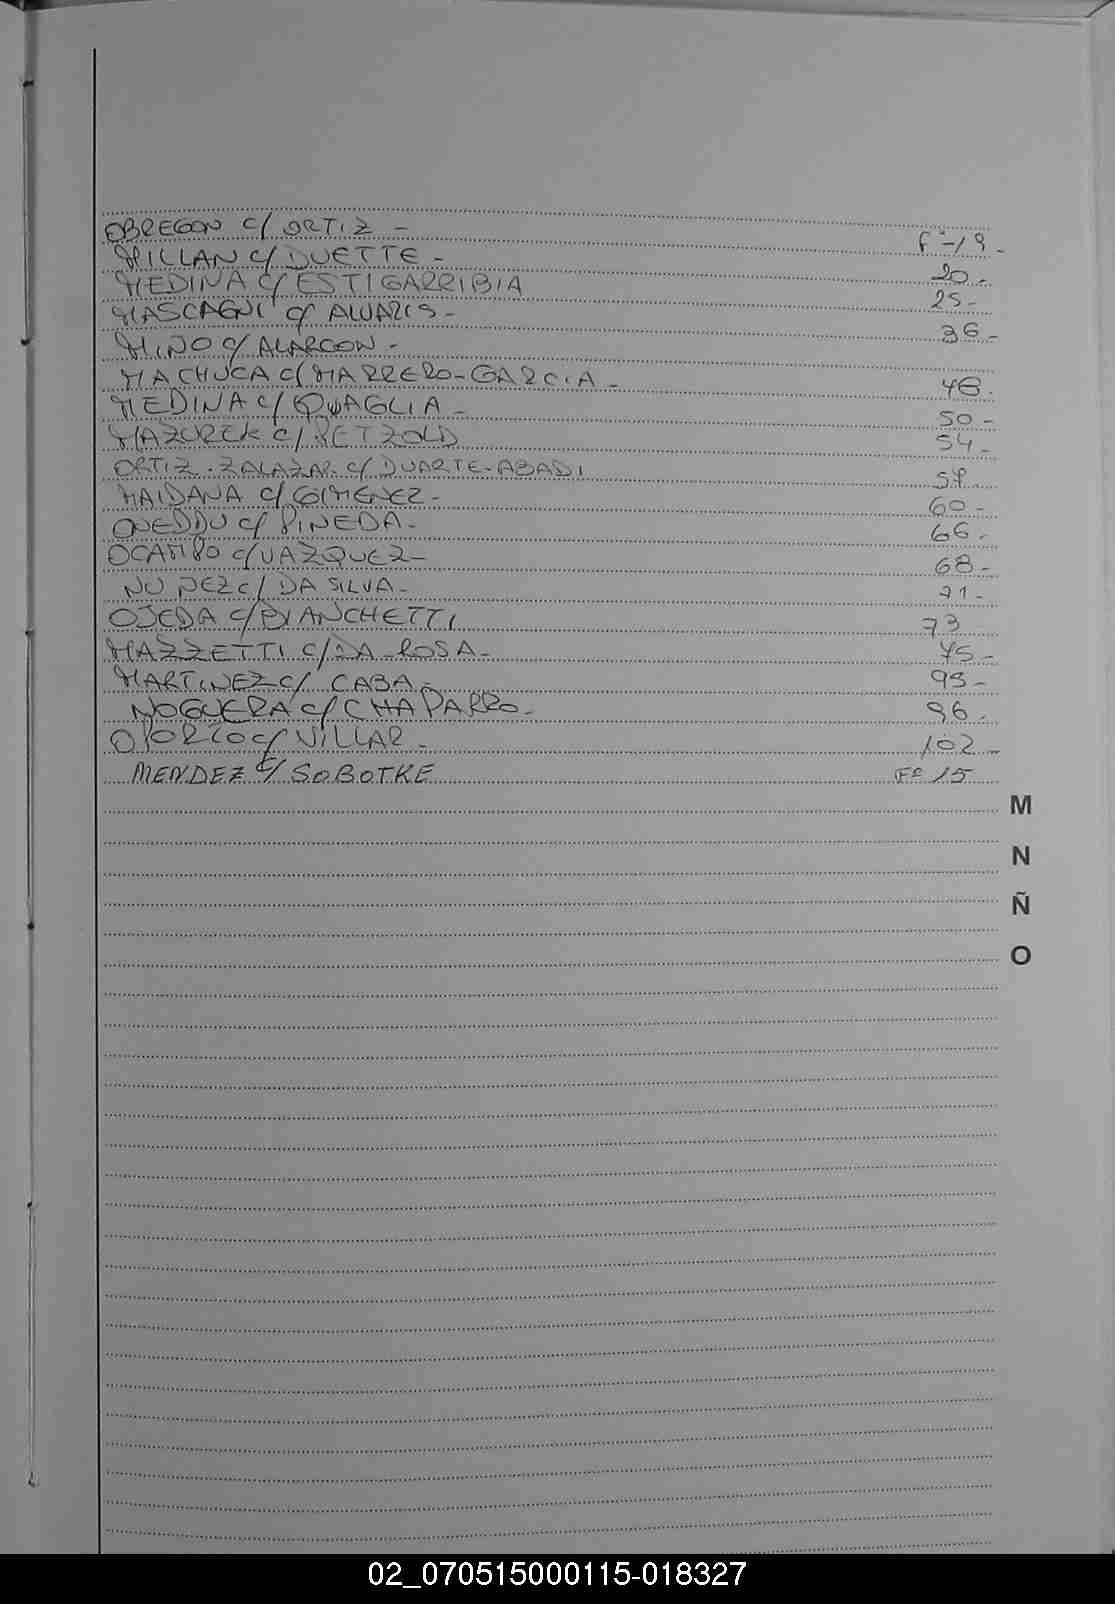 OBREGON c/ ORTIZ - Fº-19-
MILLAN c/ DUETTE - 20-
MEDINA c/ ESTIGARRIBIA 25-
MASCAGNI c/ ALVARIS - 36-
MINO c/ ALARCON -
MACHUCA c/ MARRERO-GARCIA - 48.
MEDINA c/ QUAGLIA - 50-
MAZUREK c/ PETZOLD 54-
ORTIZ-ZALAZAR c/ DUARTE-ABADI
MAIDANA c/ GIMENEZ - 60-
OVEDDU c/ PINEDA - 66-
OCAMPO c/ VAZQUEZ - 68-
NUÑEZ c/ DA SILVA - 71-
OJEDA c/ BIANCHETTI 73
MAZZETTI c/ DA ROSA - 75-
MARTINEZ c/ CABA - 95-
NOGUERA c/ CHAPARRO - 96-
OPORTO c/ VILLAR - 102-
MENDEZ c/ SOBOTKE Fº 15
M
N
Ñ
O
02_070515000115-018327